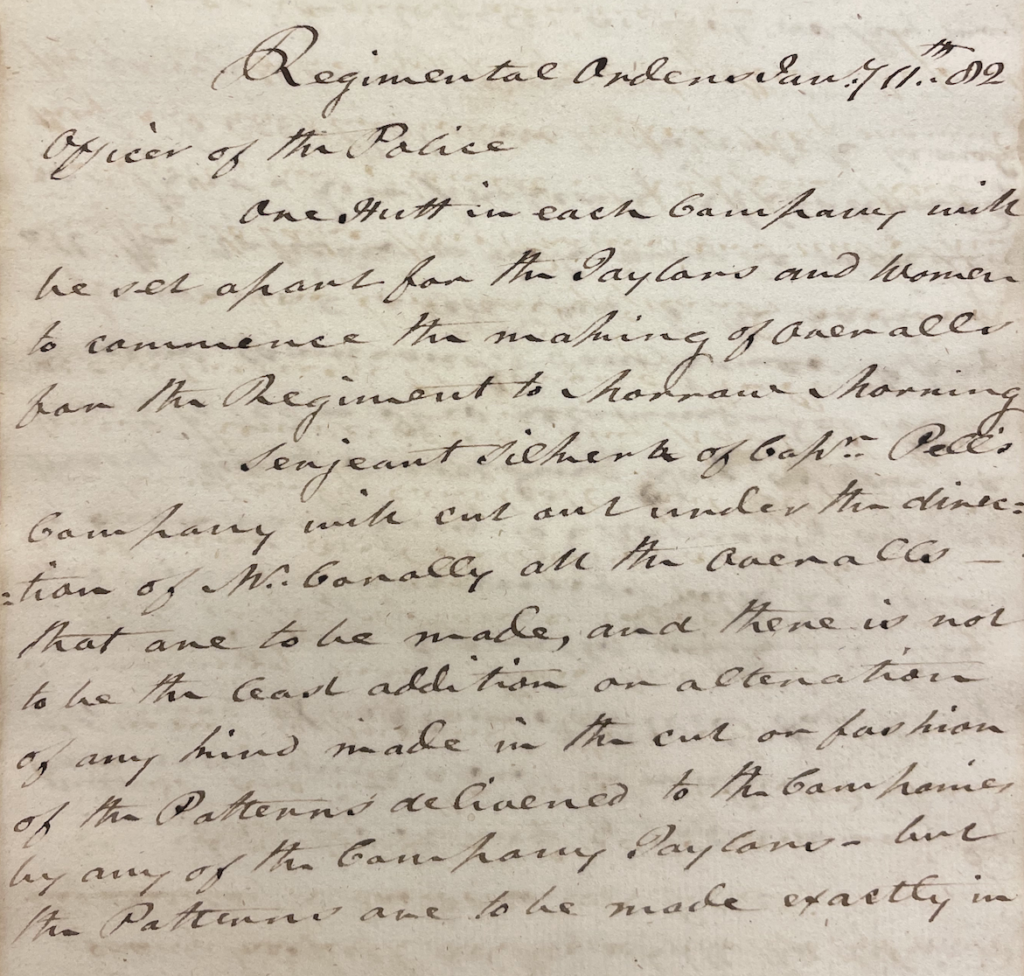 Regimental Orders Jany. 11th. 82
Officer of the Police
One Hutt in each Company will
be set apart for the Taylors and Women
to commence the making of overalls
for the Regiment to Morrow Morning
Serjeant of Capn. Pell's
Company will cut out under the direc=
=tion of Mr. Conolly all the overalls —
that are to be made, and there is not
to be the least addition or alteration
of any kind made in the cut or fashion
of the Patterns delivered to the Companies
by any of the Company Taylors - but
the Patterns are to be made exactly in